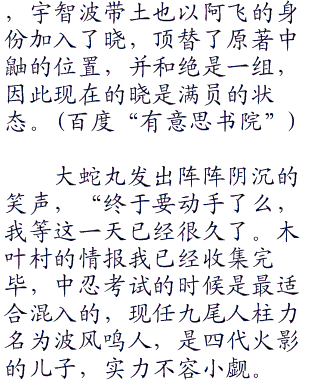 ，宇智波带土也以阿飞的身
份加入了晓，顶替了原著中
鼬的位置，并和绝是一组，
因此现在的晓是满员的状
态。(百度“有意思书院”)
大蛇丸发出阵阵阴沉的
笑声，“终于要动手了么，
我等这一天已经很久了。木
叶村的情报我已经收集完
毕，中忍考试的时候是最适
合混入的，现任九尾人柱力
名为波风鸣人，是四代火影
的儿子，实力不容小觑。